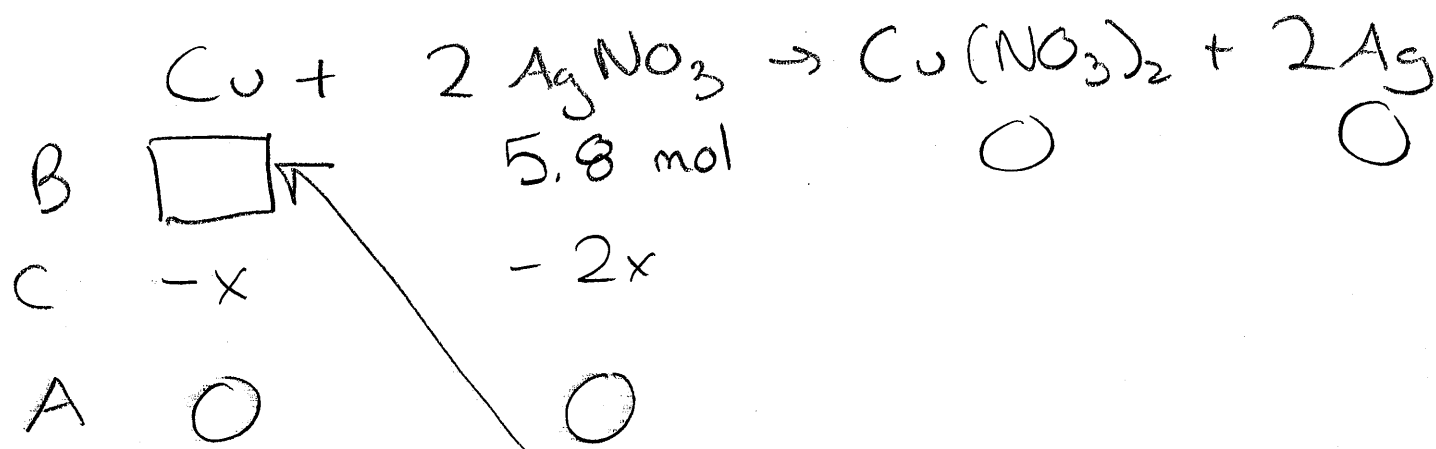 Cu + 2 AgNO₃ → Cu(NO₃)₂ + 2Ag
B 5.8 mol 0 0
C -x -2x
A 0 0